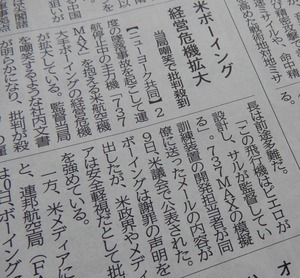 米ボーイング
経営危機拡大
当局嘲笑で批判殺到
【ニューヨーク共同】2
度の墜落事故を起こして運
航停止中の主力機「737
MAX」を抱える米航空機
大手ボーイングの経営危機
が拡大している。監督当局
を嘲笑するような社内文書
が明らかになり、批判が殺
長は前途多難だ。
「この飛行機はピエロが
設計し、サルが監督してい
る」。737MAXの模擬
訓練装置の開発担当者が同
僚に送ったメールの内容が
9日、米議会で公表された。
ボーイングは謝罪の声明を
出したが、米政界やメディ
アは安全軽視だとして批
を強めている。
一方、米メディアに
と、連邦航空局(F
は10日、ボーイング